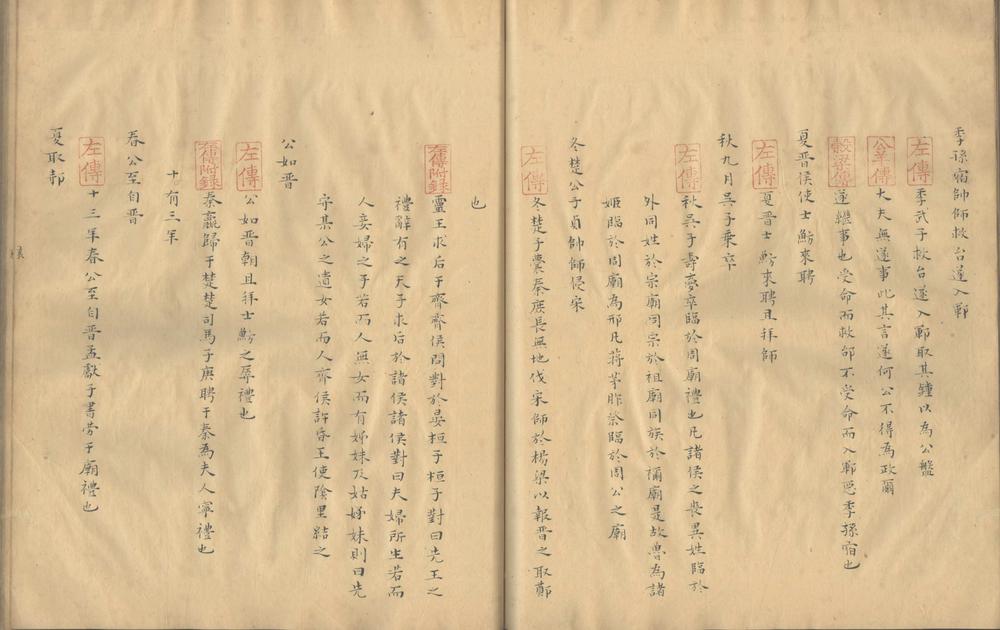 季孫宿帥師救台遂入鄆
左傳 季武子救台遂入鄆取其鐘以為公盤
公羊傳 大夫無遂事此其言遂何公不得為政爾
穀梁傳 遂繼事也受命而救邰不受命而入鄆惡季孫宿也
夏晉侯使士魴來聘
左傳 夏晉士魴來聘且拜師
秋九月吳子乗卒
左傳 秋吳子壽夢卒臨於周廟禮也凡諸侯之喪異姓臨於
外同姓於宗廟同宗於祖廟同族於禰廟是故魯為諸
姬臨於周廟為邢凡蔣茅胙祭臨於周公之廟
冬楚公子貞帥師侵宋
左傳 冬楚子囊秦庶長無地伐宋師於楊梁以報晉之取鄭
也
左傳附錄 靈王求后于齊齊侯問對於晏桓子桓子對曰先王之
禮辭有之天子求后於諸侯諸侯對曰夫婦所生若而
人妾婦之子若而人無女而有姊妹及姑姊妹則曰先
守某公之遺女若而人齊侯許昏王使陰里結之
公如晉
左傳 公如晉朝且拜士魴之辱禮也
左傳附錄 秦嬴歸于楚楚司馬子庚聘于秦為夫人寧禮也
十有三年
春公至自晉
左傳 十三年春公至自晉孟獻子書勞于廟禮也
夏取邿